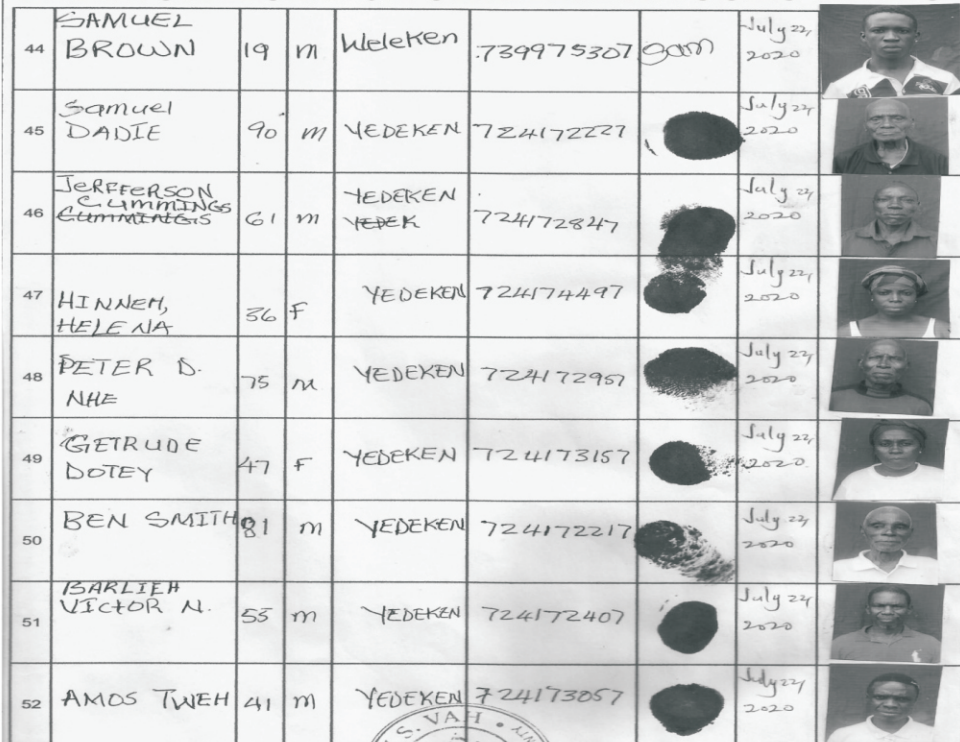 44 SAMUEL BROWN 19 m Weleken 739975307 Sam July 22, 2020
45 Samuel DADIE 90 m YEDEKEN 724172227 July 22, 2020
46 JeRFFERSON CUMMINGS CUMMINGS 61 m YEDEKEN YEDEK 724172847 July 22, 2020
47 HINNEH, HELENA 36 F YEDEKEN 724174497 July 22, 2020
48 PETER D. NHE 75 m YEDEKEN 724172957 July 22, 2020
49 GETRUDE DOTEY 47 F YEDEKEN 724173157 July 22, 2020
50 BEN SMITH 81 m YEDEKEN 724172217 July 22, 2020
51 BARLIEH VICTOR N. 55 m YEDEKEN 724172407 July 22, 2020
52 AMOS TWEH 41 m YEDEKEN 724173057 July 22, 2020
S. VAH